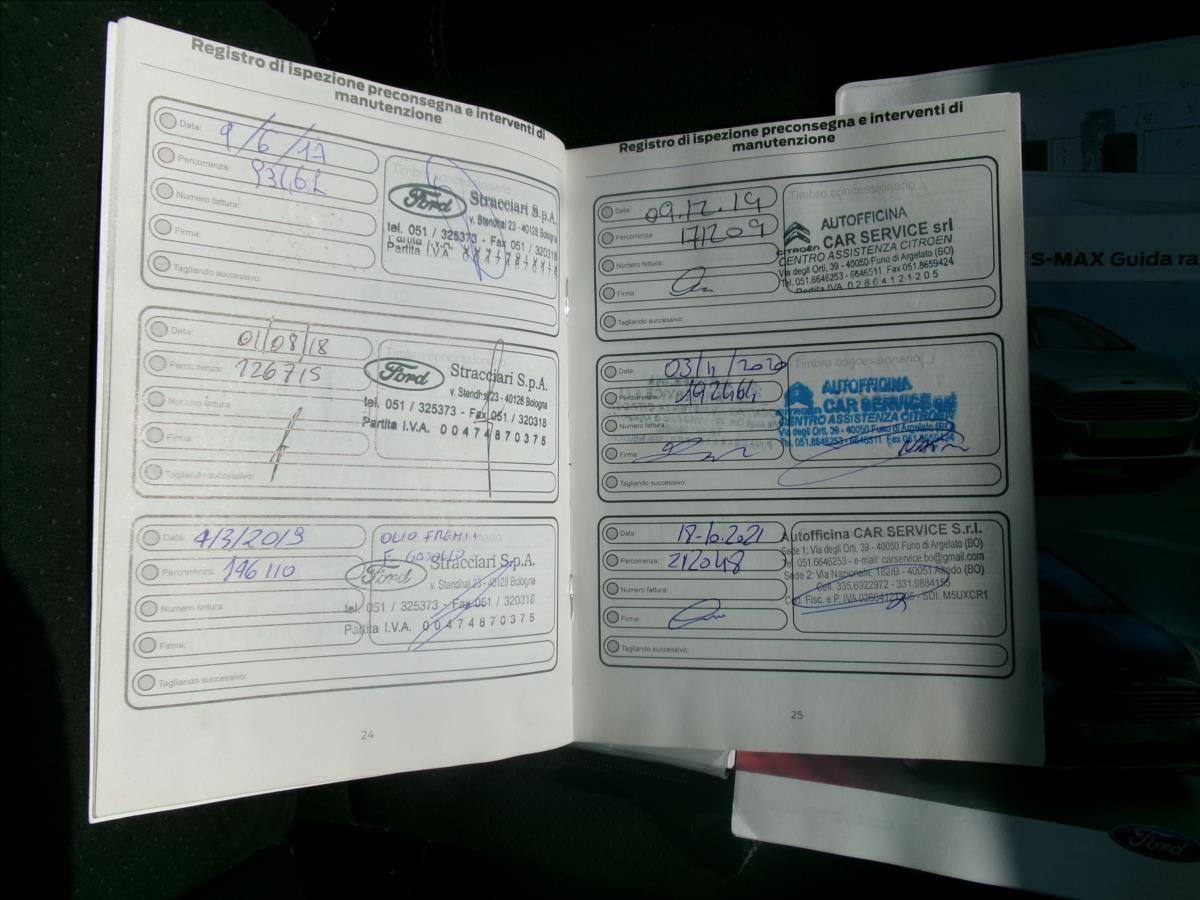 Registro di ispezione preconsegna e interventi di
manutenzione
Data: 9/6/17
Percorrenza:
Numero fattura:
Firma:
Tagliando successivo:
Timbro concessionario
Ford Stracciari S.p.A.
v. Stendhal 23 - 40128 Bologna
tel. 051 / 325373 - Fax 051 / 320318
Partita I.V.A. 00474870375
Data: 01/08/18
Percorrenza: 126715
Numero fattura:
Firma:
Tagliando successivo:
Timbro concessionario
Ford Stracciari S.p.A.
v. Stendhal 23 - 40128 Bologna
tel. 051 / 325373 - Fax 051 / 320318
Partita I.V.A. 00474870375
Data: 4/3/2019
Percorrenza: 146110
Numero fattura:
Firma:
Tagliando successivo:
OLIO FRENI
E GASOLIO
Ford Stracciari S.p.A.
v. Stendhal 23 - 40128 Bologna
tel. 051 / 325373 - Fax 051 / 320318
Partita I.V.A. 00474870375
24
Registro di ispezione preconsegna e interventi di
manutenzione
Data: 09.12.19
Percorrenza: 171209
Numero fattura:
Firma:
Tagliando successivo:
Timbro concessionario
AUTOFFICINA
CITROËN CAR SERVICE srl
CENTRO ASSISTENZA CITROEN
Via degli Orti, 39 - 40050 Funo di Argelato (BO)
Tel. 051.6646253 - 6646511 Fax 051.8659424
Partita IVA 02664121205
Data: 03/11/2020
Percorrenza: 192464
Numero fattura:
Firma:
Tagliando successivo:
Timbro concessionario
AUTOFFICINA
CAR SERVICE srl
CENTRO ASSISTENZA CITROEN
Via degli Orti, 39 - 40050 Funo di Argelato (BO)
Tel. 051.6646253 - 6646511 Fax 051.8659424
Data: 18-10.2021
Percorrenza: 212048
Numero fattura:
Firma:
Tagliando successivo:
Autofficina CAR SERVICE S.r.l.
Sede 1: Via degli Orti, 39 - 40050 Funo di Argelato (BO)
Tel. 051.6646253 - e.mail: carservice.bo@gmail.com
Sede 2: Via Nazionale, 162/B - 40051 Altedo (BO)
Cell. 335.6922972 - 331.9884155
Cod. Fisc. e P. IVA 02664121205 - SDI: M5UXCR1
25
S-MAX Guida
Ford